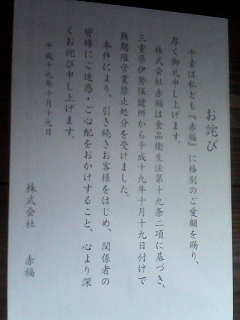 お詫び
平素は私ども『赤福』に格別のご愛顧を賜り、
厚く御礼申し上げます。
株式会社 赤福は食品衛生法第十九条二項に基づき、
三重県伊勢保健所から平成十九年十月十九日付けで
無期限営業禁止処分を受けました。
本件により、引き続きお客様をはじめ、関係者の
皆様にご迷惑・ご心配をおかけすること、心より深
くお詫び申し上げます。
平成十九年十月十九日
株式会社 赤福